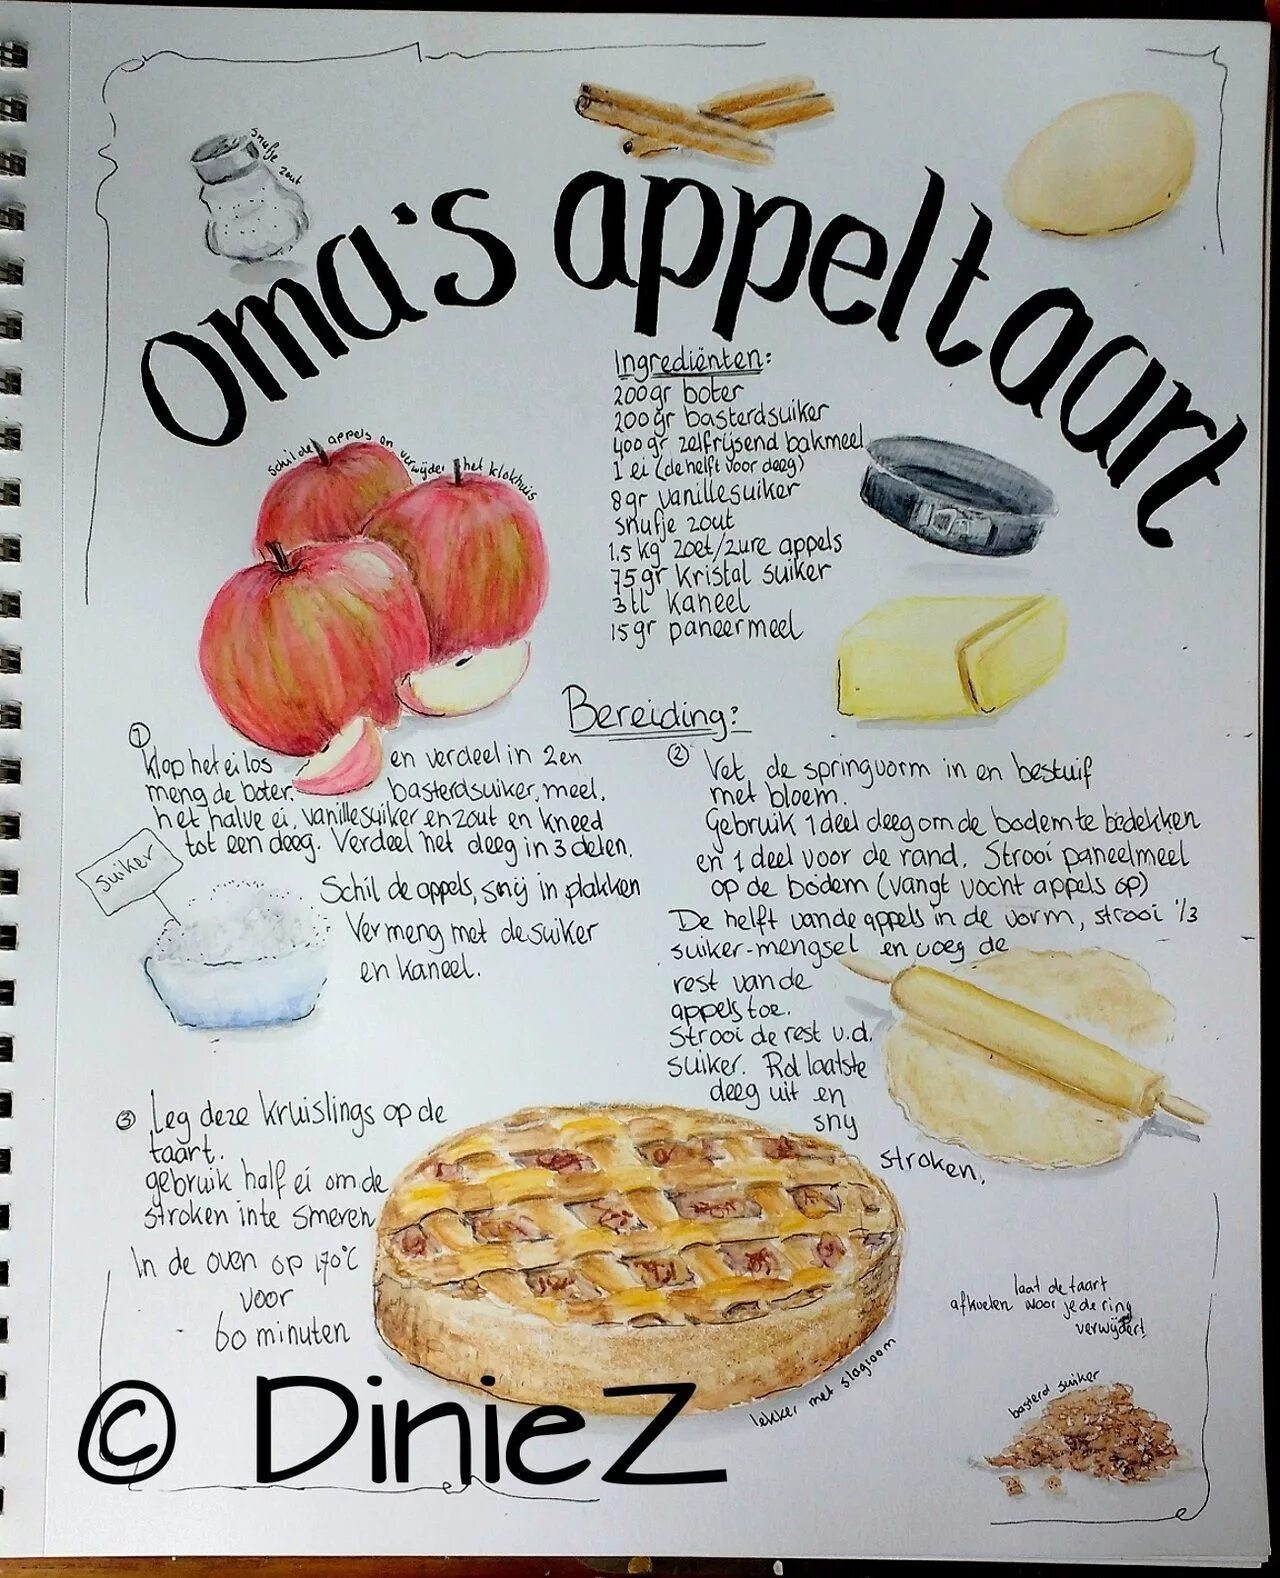 snufje zout
oma's appeltaart
Ingrediënten:
200gr boter
200gr basterdsuiker
400gr zelfrijsend bakmeel
1 ei (de helft voor deeg)
8gr vanillesuiker
snufje zout
1.5kg zoet/zure appels
75gr kristal suiker
3tl kaneel
15gr paneermeel
schil de appels en verwijder het klokhuis
Bereiding:
①
Klop het ei los en verdeel in 2 en
meng de boter. basterdsuiker, meel,
het halve ei, vanillesuiker en zout en kneed
tot een deeg. Verdeel het deeg in 3 delen.
suiker
Schil de appels, snij in plakken
Vermeng met de suiker
en kaneel.
② Vet de springvorm in en bestuif
met bloem.
Gebruik 1 deel deeg om de bodem te bedekken
en 1 deel voor de rand. Strooi paneelmeel
op de bodem (vangt vocht appels op)
De helft van de appels in de vorm, strooi 1/3
suiker-mengsel en voeg de
rest van de
appels toe.
Strooi de rest v.d.
suiker. Rol laatste
deeg uit en
sny
stroken.
③ Leg deze kruislings op de
taart.
gebruik half ei om de
stroken in te smeren
In de oven op 170°C
voor
60 minuten
laat de taart
afkoelen voor je de ring
verwijdert
lekker met slagroom
basterd suiker
© DinieZ